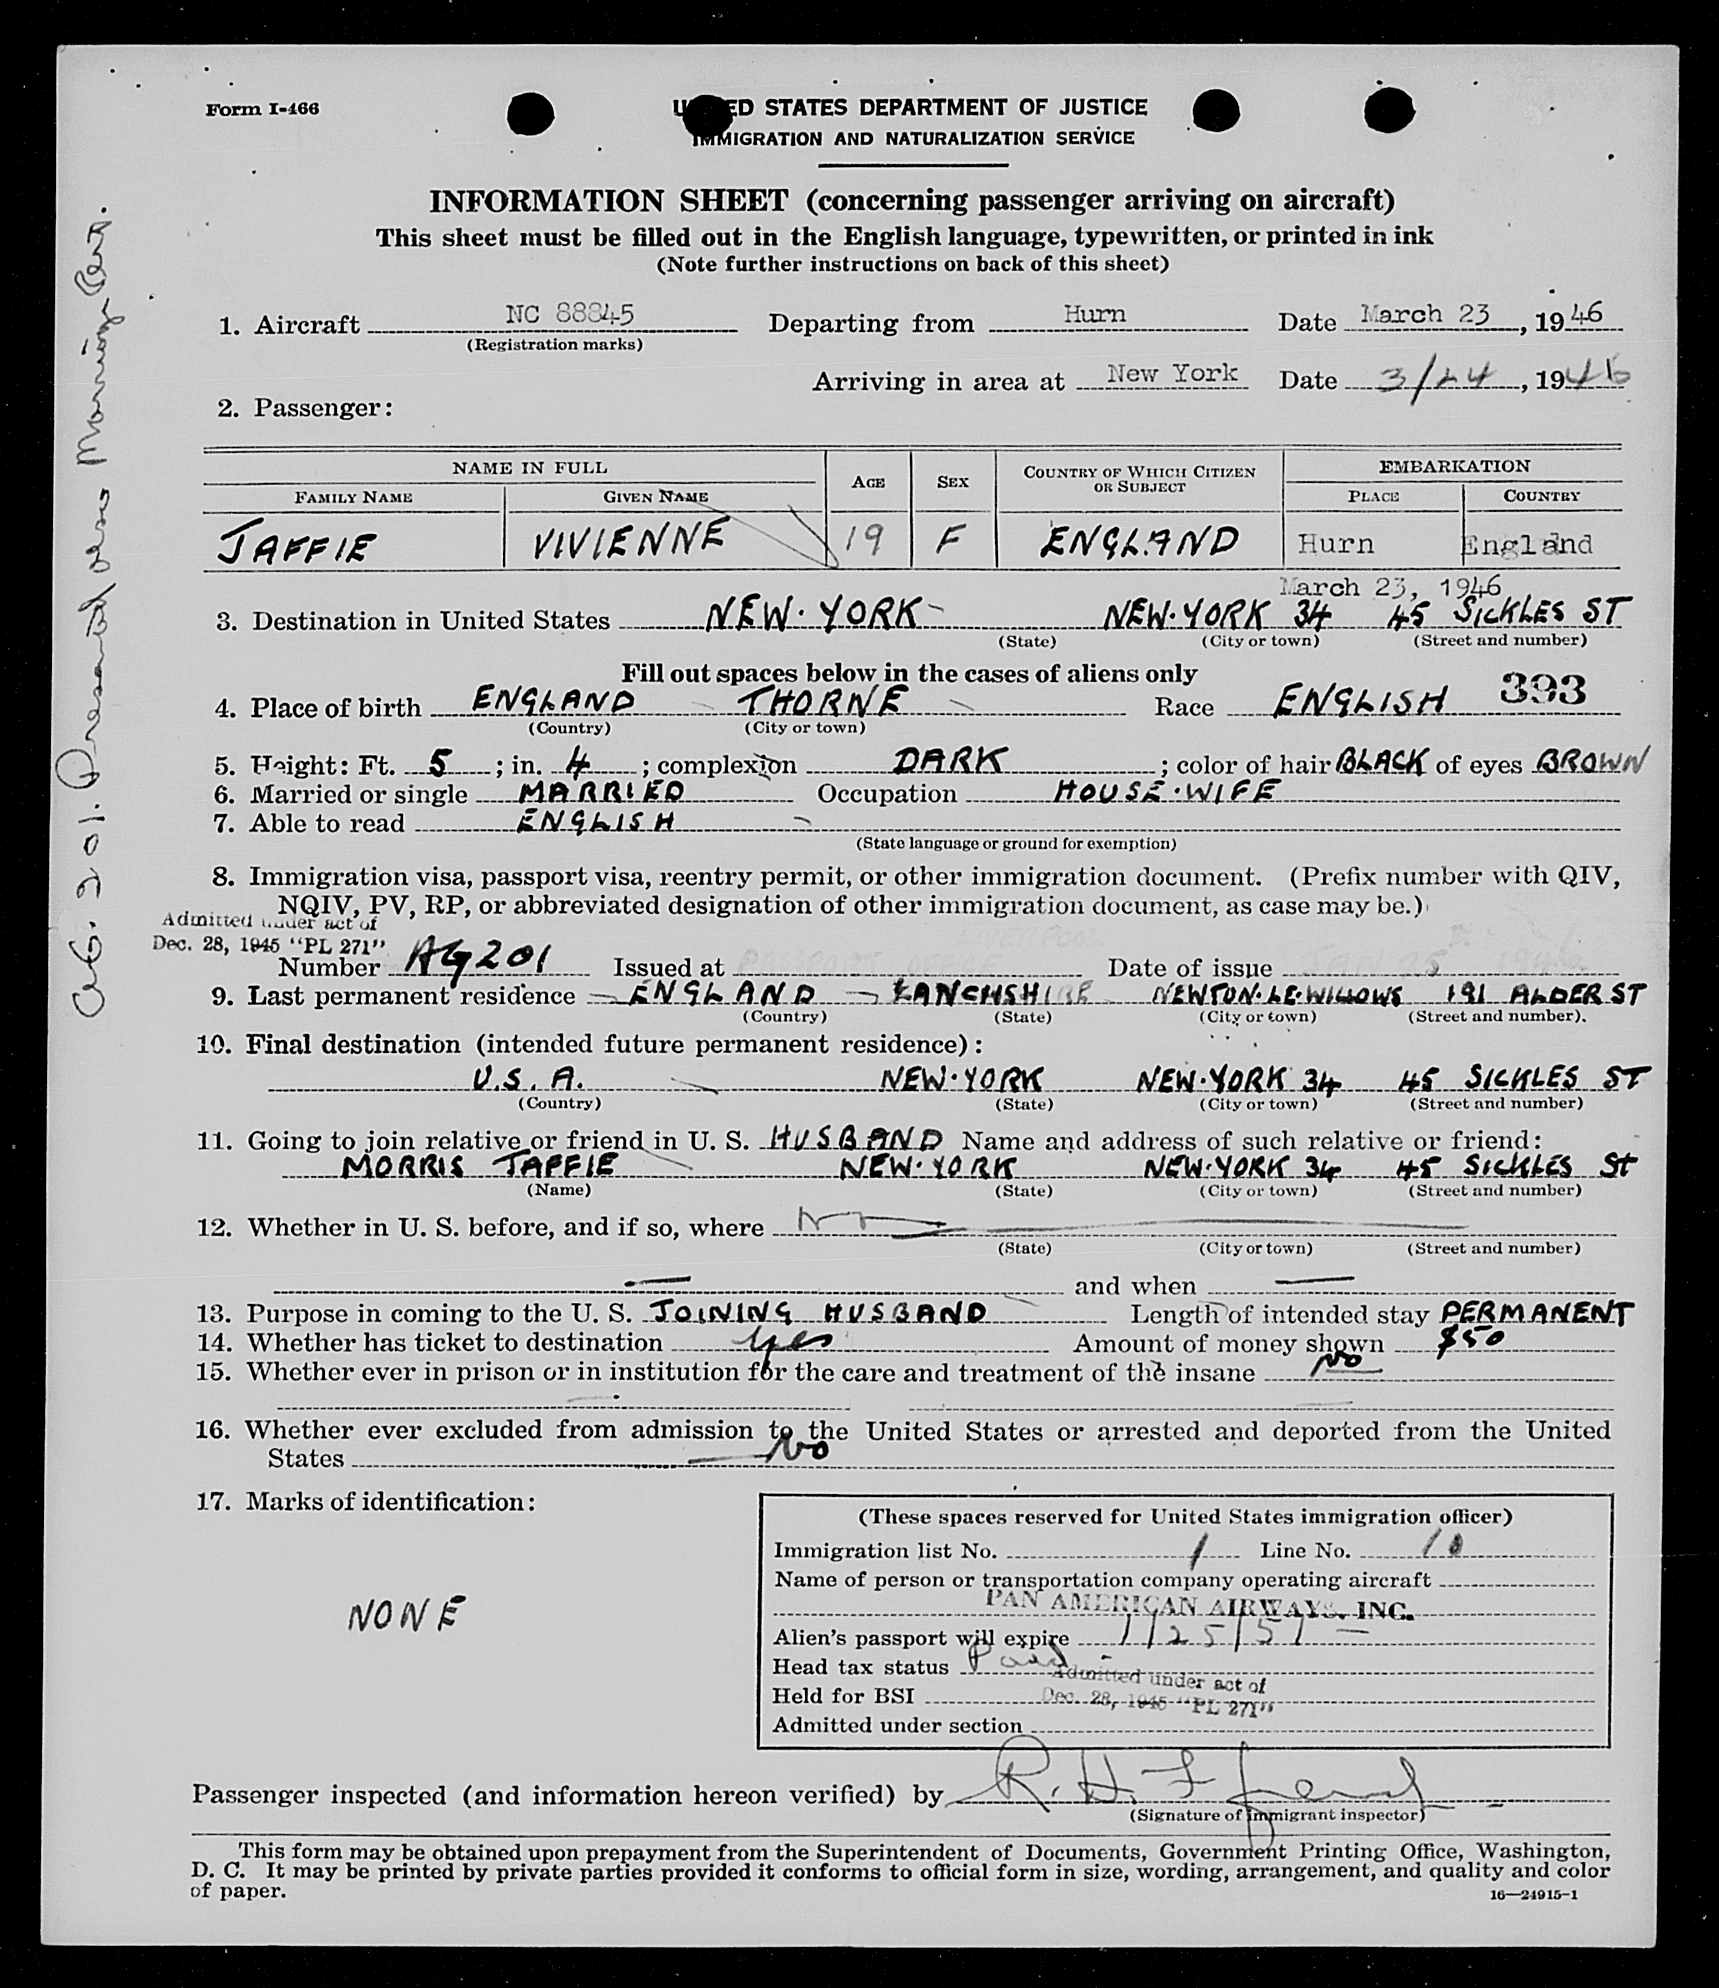 Form I-466
UNITED STATES DEPARTMENT OF JUSTICE
IMMIGRATION AND NATURALIZATION SERVICE
INFORMATION SHEET (concerning passenger arriving on aircraft)
This sheet must be filled out in the English language, typewritten, or printed in ink
(Note further instructions on back of this sheet)
1. Aircraft NC 88845 Departing from Hurn Date March 23, 1946
(Registration marks)
Arriving in area at New York Date 3/24, 1946
2. Passenger:
NAME IN FULL AGE SEX COUNTRY OF WHICH CITIZEN OR SUBJECT EMBARKATION
FAMILY NAME GIVEN NAME PLACE COUNTRY
JAFFIE VIVIENNE 19 F ENGLAND Hurn England
March 23, 1946
3. Destination in United States NEW·YORK NEW·YORK 34 45 SICKLES ST
(State) (City or town) (Street and number)
Fill out spaces below in the cases of aliens only
393
4. Place of birth ENGLAND THORNE Race ENGLISH
(Country) (City or town)
5. Height: Ft. 5; in. 4; complexion DARK; color of hair BLACK of eyes BROWN
6. Married or single MARRIED Occupation HOUSE·WIFE
7. Able to read ENGLISH
(State language or ground for exemption)
8. Immigration visa, passport visa, reentry permit, or other immigration document. (Prefix number with QIV,
NQIV, PV, RP, or abbreviated designation of other immigration document, as case may be.)
Admitted under act of
Dec. 28, 1945 "PL 271"
Number AG 201 Issued at PASSPORT OFFICE Date of issue JAN 25
9. Last permanent residence ENGLAND LANCHSHIRE NEWTON·LE·WILLOWS 191 ALDER ST
(Country) (State) (City or town) (Street and number).
10. Final destination (intended future permanent residence):
U.S.A. NEW·YORK NEW·YORK 34 45 SICKLES ST
(Country) (State) (City or town) (Street and number)
11. Going to join relative or friend in U. S. HUSBAND Name and address of such relative or friend:
MORRIS JAFFIE NEW·YORK NEW·YORK 34 45 SICKLES St
(Name) (State) (City or town) (Street and number)
12. Whether in U. S. before, and if so, where No
(State) (City or town) (Street and number)
and when
13. Purpose in coming to the U. S. JOINING HUSBAND Length of intended stay PERMANENT
14. Whether has ticket to destination Yes Amount of money shown $50
15. Whether ever in prison or in institution for the care and treatment of the insane No
16. Whether ever excluded from admission to the United States or arrested and deported from the United
States No
17. Marks of identification:
NONE
(These spaces reserved for United States immigration officer)
Immigration list No. 1 Line No. 10
Name of person or transportation company operating aircraft
PAN AMERICAN AIRWAYS, INC.
Alien's passport will expire 1/25/51
Head tax status Paid
Admitted under act of
Held for BSI Dec. 28, 1945 "PL 271"
Admitted under section
Passenger inspected (and information hereon verified) by R. H.
(Signature of immigrant inspector)
This form may be obtained upon prepayment from the Superintendent of Documents, Government Printing Office, Washington,
D. C. It may be printed by private parties provided it conforms to official form in size, wording, arrangement, and quality and color
of paper.
16—24915-1
AG. 201. Presented also Marriage Cert.